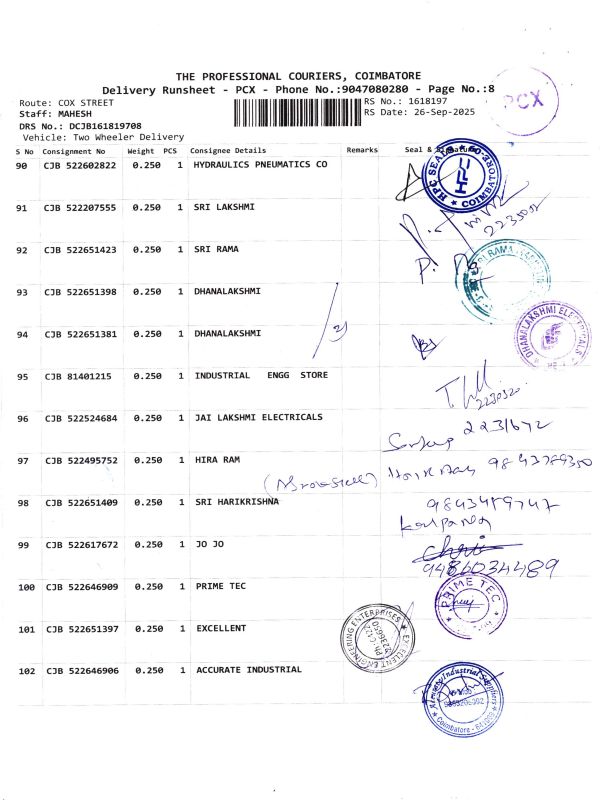 THE PROFESSIONAL COURIERS, COIMBATORE
Delivery Runsheet - PCX - Phone No.:9047080280 - Page No.:8
PCX
Route: COX STREET
RS No.: 1618197
Staff: MAHESH
RS Date: 26-Sep-2025
DRS No.: DCJB161819708
Vehicle: Two Wheeler Delivery
S No Consignment No Weight PCS Consignee Details Remarks Seal & Signature
90 CJB 522602822 0.250 1 HYDRAULICS PNEUMATICS CO
HPC SEALS COIMBATORE
91 CJB 522207555 0.250 1 SRI LAKSHMI
92 CJB 522651423 0.250 1 SRI RAMA
SRI RAMA
93 CJB 522651398 0.250 1 DHANALAKSHMI
94 CJB 522651381 0.250 1 DHANALAKSHMI
DHANALAKSHMI ELECTRICALS
95 CJB 81401215 0.250 1 INDUSTRIAL ENGG STORE
2230520
96 CJB 522524684 0.250 1 JAI LAKSHMI ELECTRICALS
2231672
97 CJB 522495752 0.250 1 HIRA RAM
98 CJB 522651409 0.250 1 SRI HARIKRISHNA
99 CJB 522617672 0.250 1 JO JO
9486034489
100 CJB 522646909 0.250 1 PRIME TEC
PRIME TEC
101 CJB 522651397 0.250 1 EXCELLENT
EXCELLENT ENGINEERING ENTERPRISES
102 CJB 522646906 0.250 1 ACCURATE INDUSTRIAL
Accurate Industrial Suppliers
Coimbatore